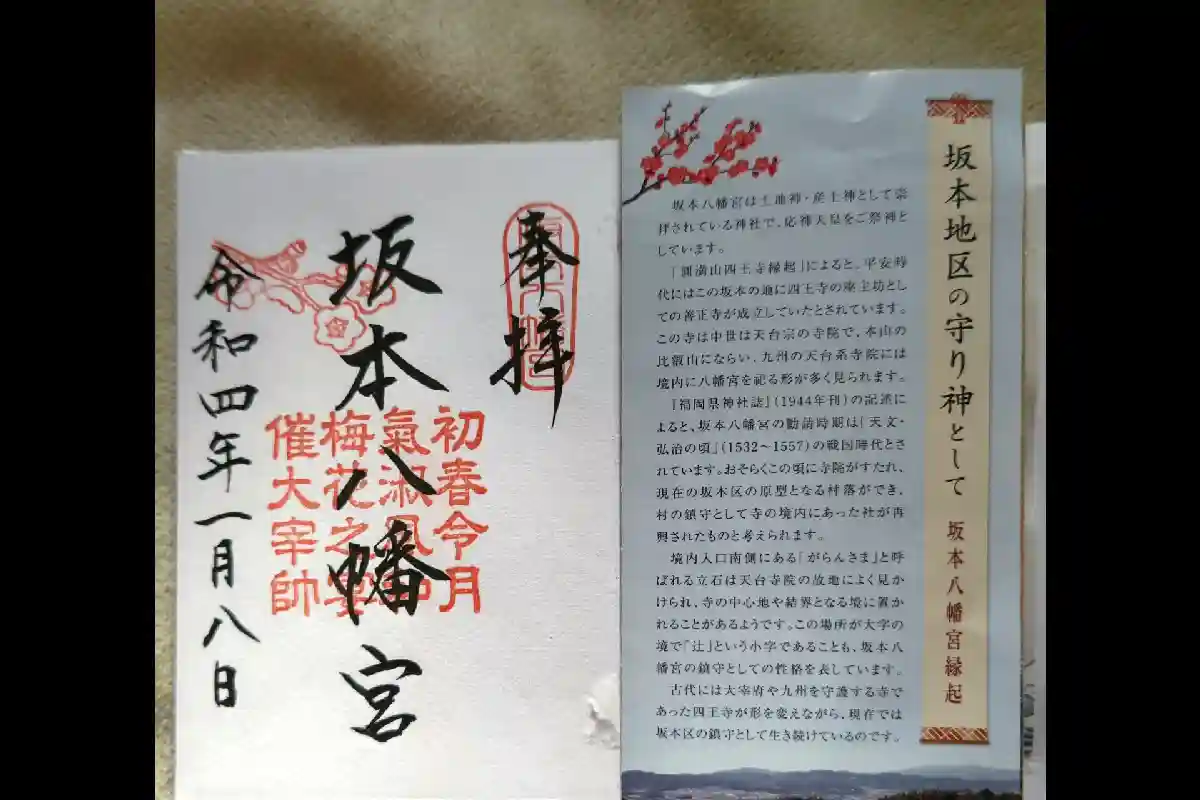 奉拝
坂本八幡宮
令和四年一月八日
初春令月
氣淑風和
梅花之宴
催大宰帥
坂本地区の守り神として 坂本八幡宮縁起
坂本八幡宮は土地神・産土神として崇
拝されている神社で、応神天皇をご祭神と
しています。
「圓満山四王寺縁起」によると、平安時
代にはこの坂本の地に四王寺の座主坊とし
ての善正寺が成立していたとされています。
この寺は中世は天台宗の寺院で、本山の
比叡山にならい、九州の天台系寺院には
境内に八幡宮を祀る形が多く見られます。
『福岡県神社誌』(1944年刊)の記述に
よると、坂本八幡宮の勧請時期は「天文・
弘治の頃」(1532〜1557)の戦国時代とさ
れています。おそらくこの頃に寺院がすたれ、
現在の坂本区の原型となる村落ができ、
村の鎮守として寺の境内にあった社が再
興されたものと考えられます。
境内入口南側にある「がらんさま」と呼
ばれる立石は天台寺院の故地によく見か
けられ、寺の中心地や結界となる境に置か
れることがあるようです。この場所が大字の
境で「辻」という小字であることも、坂本八
幡宮の鎮守としての性格を表しています。
古代には大宰府や九州を守護する寺で
あった四王寺が形を変えながら、現在では
坂本区の鎮守として生き続けているのです。